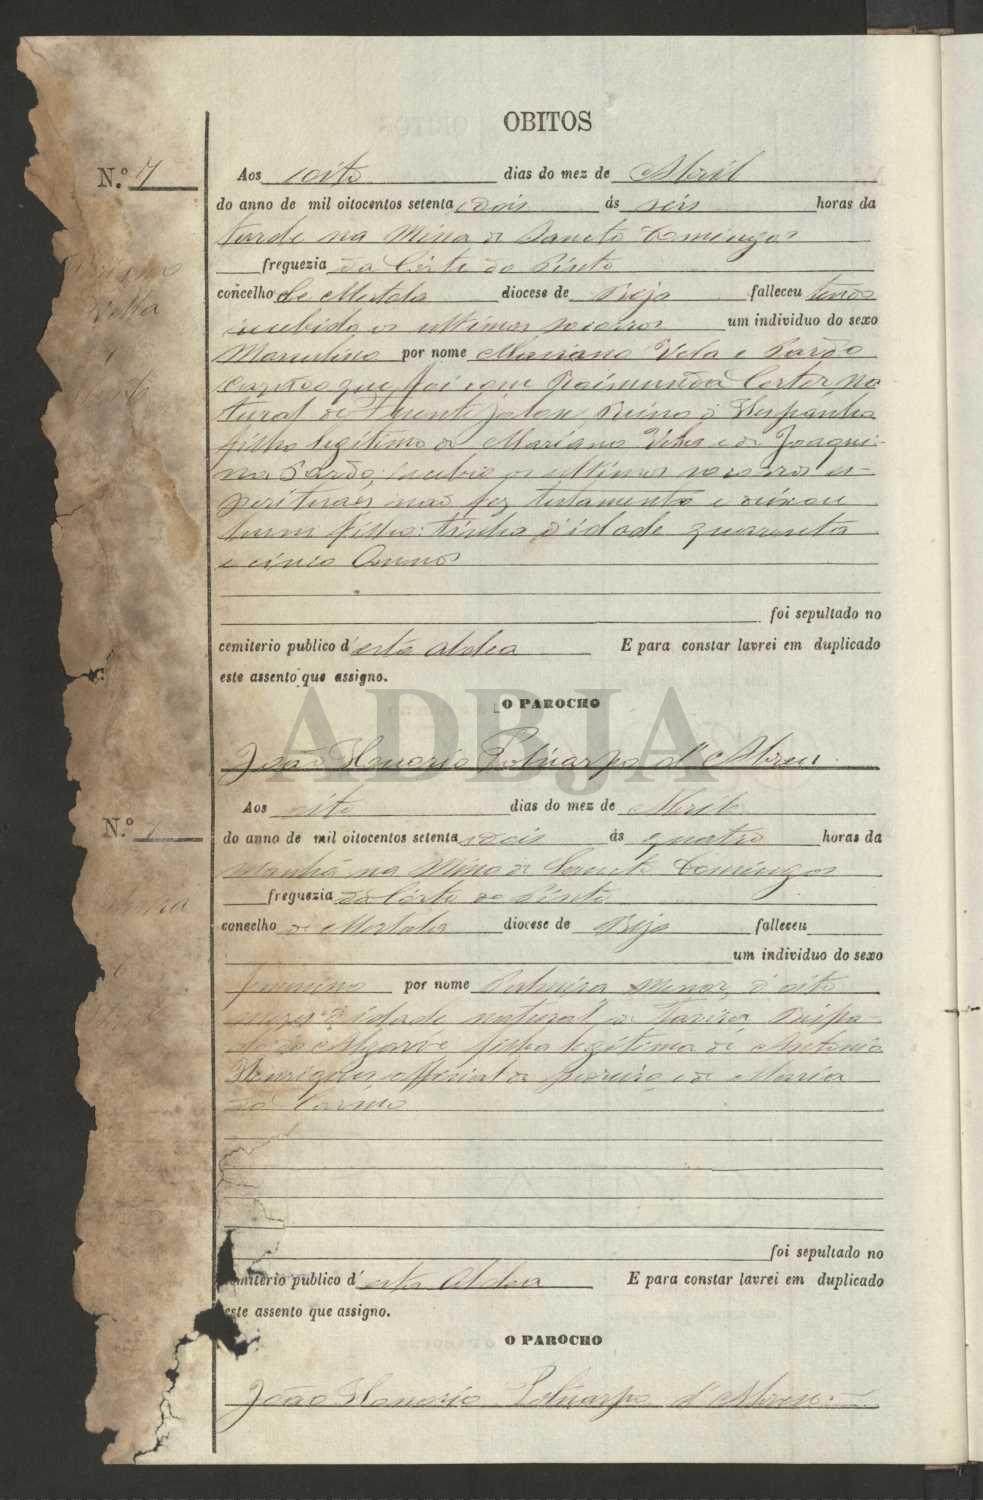 OBITOS
N.º 7
Aos oito dias do mez de Abril
do anno de mil oitocentos setenta e Dois ás seis horas da
tarde na Mina de Sancto Domingos
freguezia da Côrte do Pinto
concelho de Mertola diocese de Beja falleceu tendo
recebido os ultimos socorros um individuo do sexo
Masculino por nome Mariano Vela e Pardo
Cazado que foi com Raimunda Cortez na
tural de Reino d'Hespanha
filho legitimo de Mariano Vela e de Joaqui-
na Pardo; recebeo os ultimos socorros es-
perituaes, não fez testamento e deixou
hum filho: tinha d'idade quarenta
e cinco Annos
foi sepultado no
cemiterio publico d'esta aldea E para constar lavrei em duplicado
este assento que assigno.
ADBJA
O PAROCHO
João Honorio Policarpo d'Abreu
N.º
Aos oito dias do mez de Abril
do anno de mil oitocentos setenta e Dois ás quatro horas da
Manhã na Mina de Sancto Domingos
freguezia da Côrte do Pinto
concelho de Mertola diocese de Beja falleceu
um individuo do sexo
femenino por nome Palmira Menor, d'oito
mezes d'idade natural de Tavira Bispa-
do do Algarve filha legitima de Antonio
Henriques official de pedreiro e de Maria
do Carmo
foi sepultado no
cemiterio publico d'esta Aldea E para constar lavrei em duplicado
este assento que assigno.
O PAROCHO
João Honorio Policarpo d'Abreu